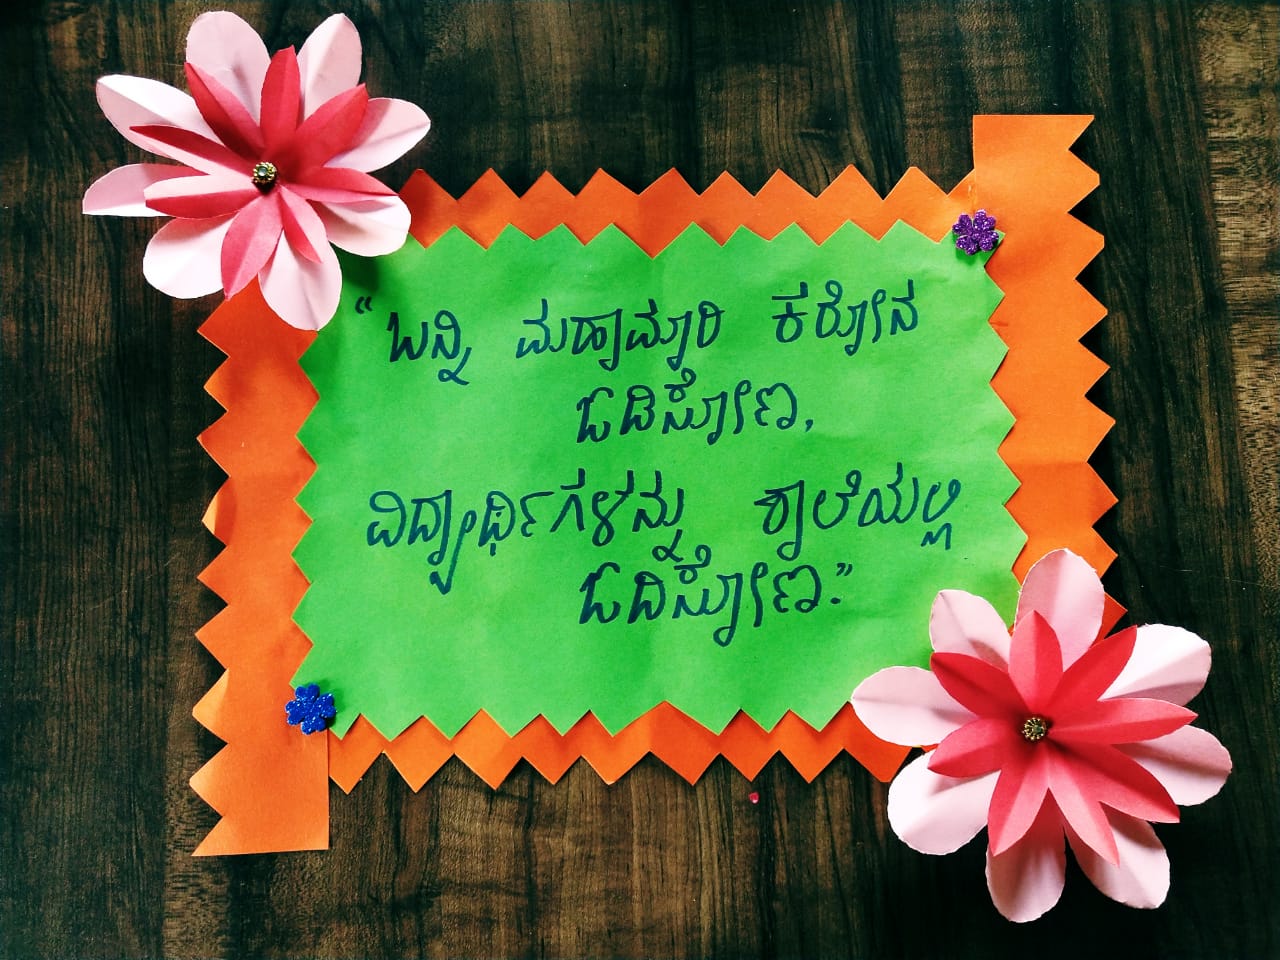 “ ಬನ್ನಿ ಮಹಾಮ್ಮಾರಿ ಕರೋನ
ಓಡಿಸೋಣ,
ವಿದ್ಯಾರ್ಥಿಗಳನ್ನು ಶಾಲೆಯಲ್ಲಿ
ಓದಿಸೋಣ.”